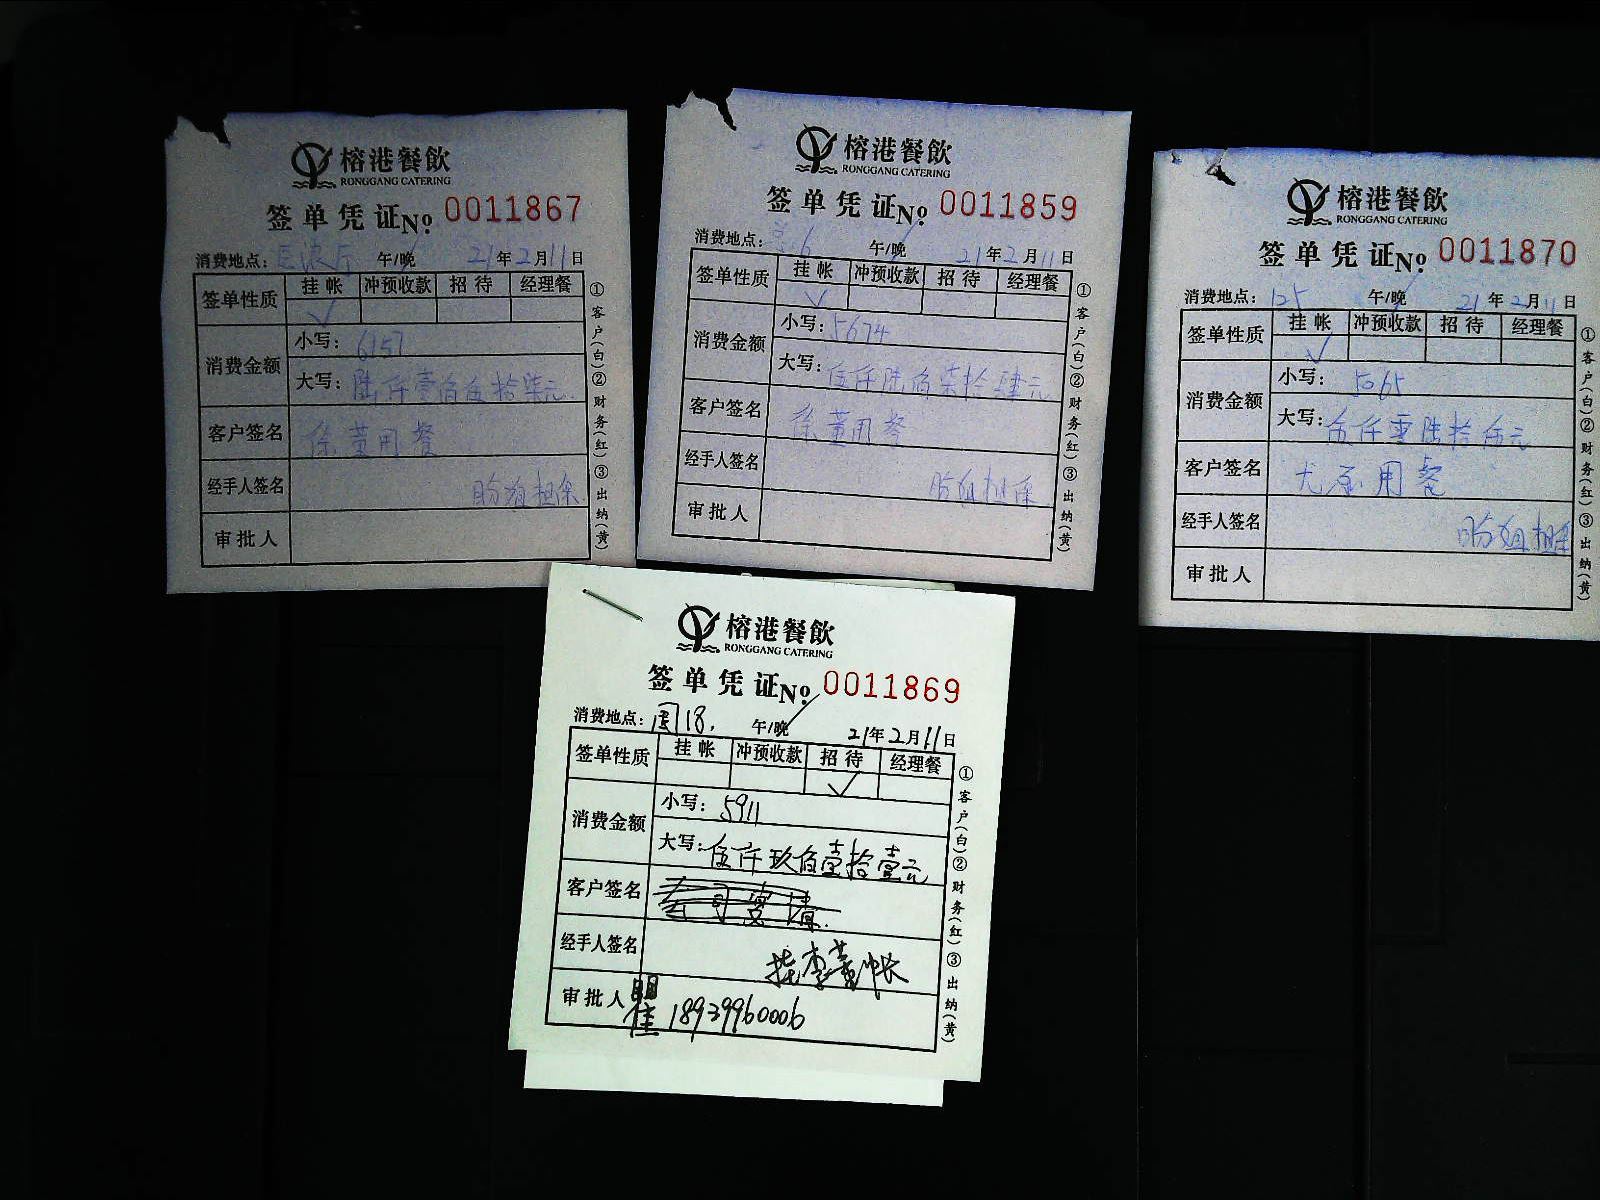 榕港餐飲
RONGGANG CATERING
签单凭证 No. 0011867
消费地点: 午/晚 21年2月11日
签单性质 挂帐 冲预收款 招待 经理餐
✓
消费金额 小写: 6157
大写: 陆仟壹佰伍拾柒元
客户签名 徐董用餐
经手人签名 盼姐担保
审批人
①客户(白)②财务(红)③出纳(黄)
榕港餐飲
RONGGANG CATERING
签单凭证 No. 0011859
消费地点: 6 午/晚 21年2月11日
签单性质 挂帐 冲预收款 招待 经理餐
✓
消费金额 小写: 5674
大写: 伍仟陆佰柒拾肆元
客户签名 徐董用餐
经手人签名 盼姐担保
审批人
①客户(白)②财务(红)③出纳(黄)
榕港餐飲
RONGGANG CATERING
签单凭证 No. 0011870
消费地点: 125 午/晚 21年2月11日
签单性质 挂帐 冲预收款 招待 经理餐
✓
消费金额 小写: 5065
大写: 伍仟零陆拾伍元
客户签名 尤总用餐
经手人签名 盼姐担保
审批人
①客户(白)②财务(红)③出纳(黄)
榕港餐飲
RONGGANG CATERING
签单凭证 No. 0011869
消费地点: 18. 午/晚 21年2月11日
签单性质 挂帐 冲预收款 招待 经理餐
✓
消费金额 小写: 5911
大写: 伍仟玖佰壹拾壹元
客户签名
经手人签名 挂李董帐
审批人 18939960006
①客户(白)②财务(红)③出纳(黄)